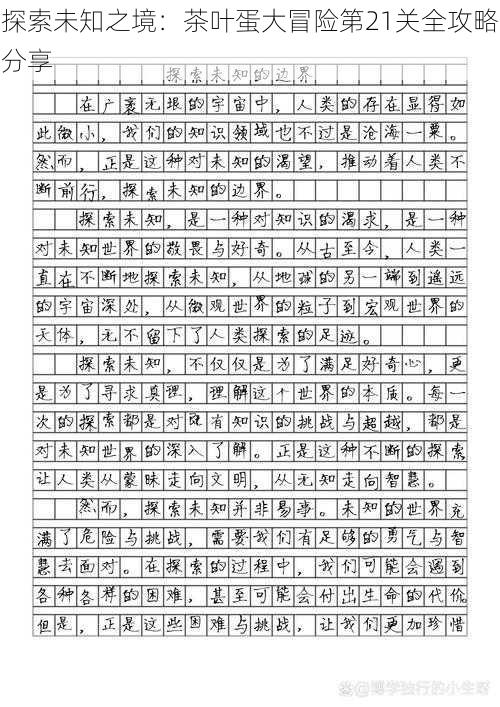 探索未知之境：茶叶蛋大冒险第21关全攻略
分享
探索未知的边界
在广袤无垠的宇宙中，人类的存在显得如
此微小，我们的知识领域也不过是沧海一粟。
然而，正是这种对未知的渴望，推动着人类不
断前行，探索未知的边界。
探索未知，是一种对知识的渴求，是一种
对未知世界的敬畏与好奇。从古至今，人类一
直在不断地探索未知，从地球的另一端到遥远
的宇宙深处，从微观世界的粒子到宏观世界的
天体，无不留下了人类探索的足迹。
探索未知，不仅仅是为了满足好奇心，更
是为了寻求真理，理解这个世界的本质。每一
次的探索都是对既有知识的挑战与超越，都是
对未知世界的深入了解。正是这种不断的探索
让人类从蒙昧走向文明，从无知走向智慧。
然而，探索未知并非易事。未知的世界充
满了危险与挑战，需要我们有足够的勇气与智
慧去面对。在探索的过程中，我们可能会遇到
各种各样的困难，甚至可能会付出生命的代价。
但是，正是这些困难与挑战，让我们更加珍惜
@博学独行的小生呀